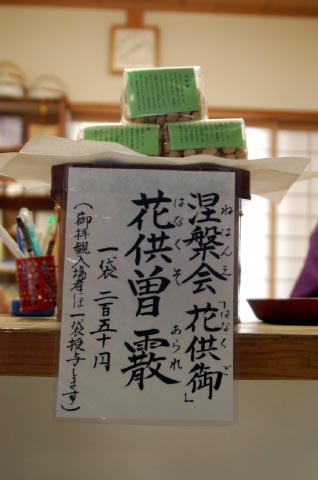 涅槃会「花供御」
ねはんえ はなくご
花供曽霰
はなくそ あられ
一袋 二百五十円
(御拝観入場者は一袋授与します)